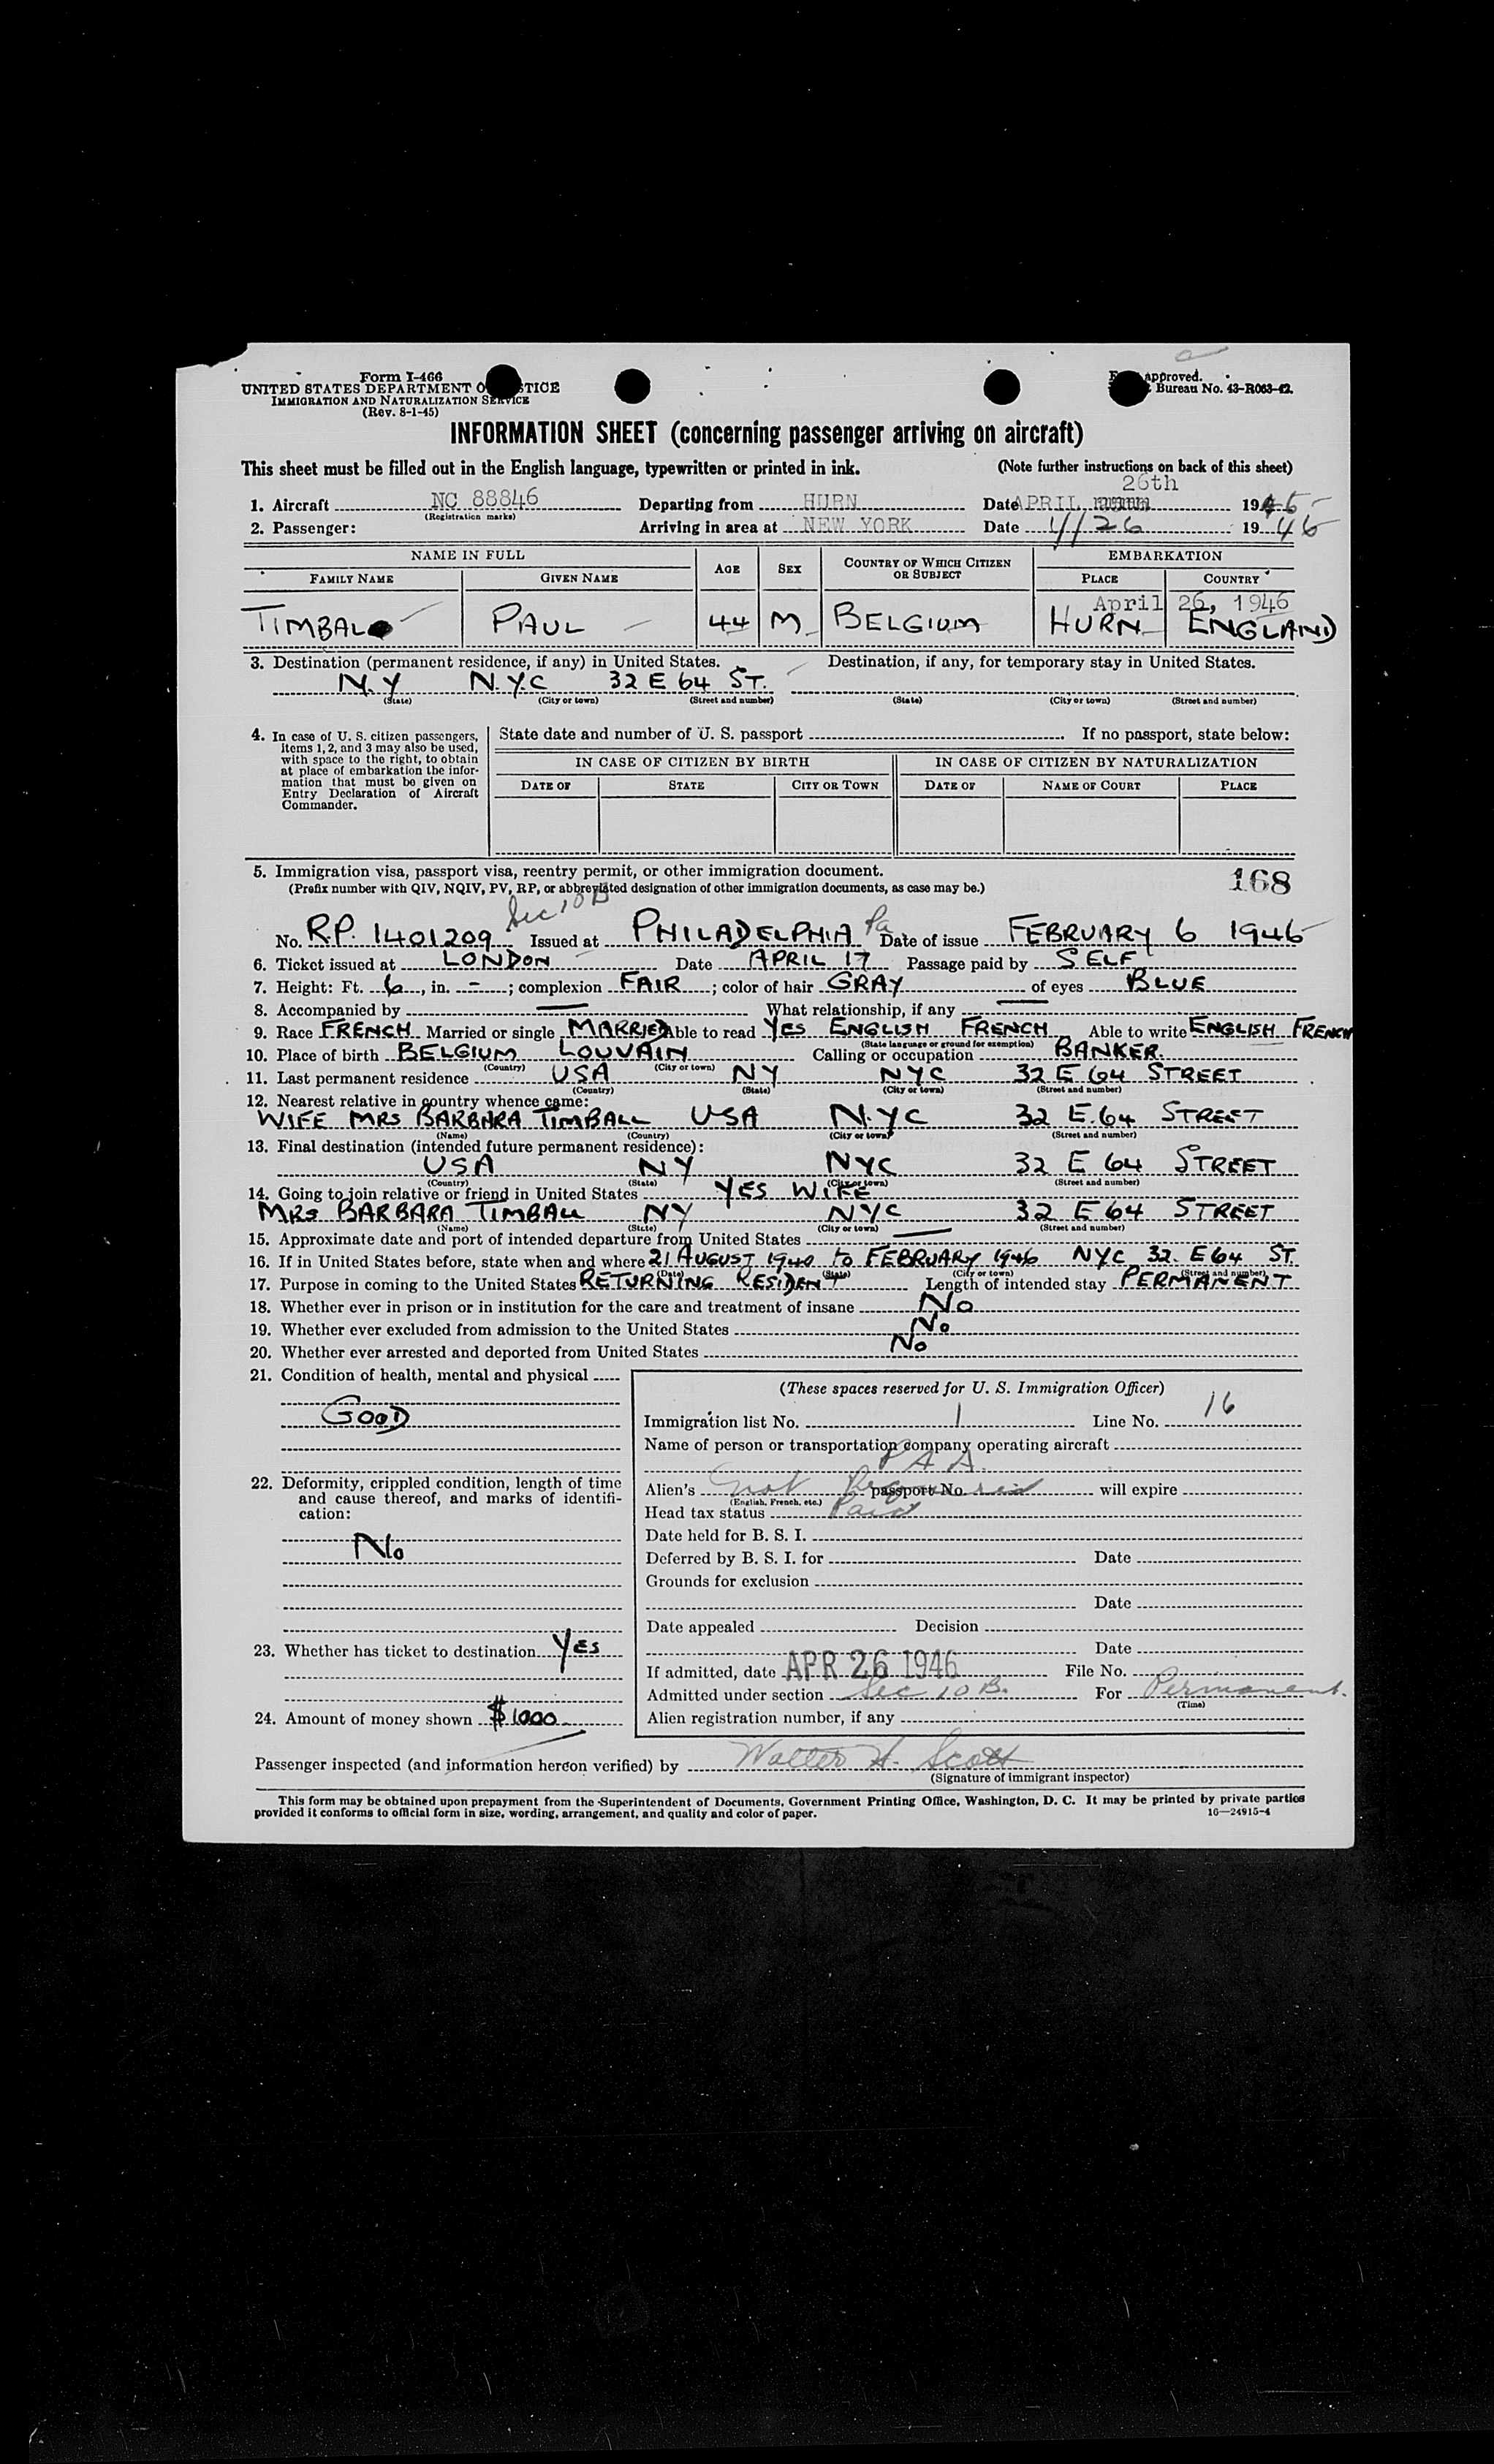 Form I-466
UNITED STATES DEPARTMENT O TICE
IMMIGRATION AND NATURALIZATION SERVICE
(Rev. 8-1-45)
approved.
Bureau No. 43-R063-42.
INFORMATION SHEET (concerning passenger arriving on aircraft)
This sheet must be filled out in the English language, typewritten or printed in ink. (Note further instructions on back of this sheet)
26th
1. Aircraft NC 88846 Departing from HURN Date APRIL 1946
(Registration marks)
2. Passenger: Arriving in area at NEW YORK Date 4/26 1946
NAME IN FULL AGE SEX COUNTRY OF WHICH CITIZEN OR SUBJECT EMBARKATION
FAMILY NAME GIVEN NAME PLACE COUNTRY
April 26, 1946
TIMBAL PAUL 44 M BELGIUM HURN ENGLAND
3. Destination (permanent residence, if any) in United States. Destination, if any, for temporary stay in United States.
N.Y N.Y.C 32 E 64 ST.
(State) (City or town) (Street and number) (State) (City or town) (Street and number)
4. In case of U. S. citizen passengers, items 1, 2, and 3 may also be used, with space to the right, to obtain at place of embarkation the information that must be given on Entry Declaration of Aircraft Commander.
State date and number of U. S. passport If no passport, state below:
IN CASE OF CITIZEN BY BIRTH IN CASE OF CITIZEN BY NATURALIZATION
DATE OF STATE CITY OR TOWN DATE OF NAME OF COURT PLACE
5. Immigration visa, passport visa, reentry permit, or other immigration document.
(Prefix number with QIV, NQIV, PV, RP, or abbreviated designation of other immigration documents, as case may be.)
168
Sec 10 B
No. R.P. 1401209 Issued at PHILADELPHIA Pa Date of issue FEBRUARY 6 1946
6. Ticket issued at LONDON Date APRIL 17 Passage paid by SELF
7. Height: Ft. 6, in. -; complexion FAIR; color of hair GRAY of eyes BLUE
8. Accompanied by — What relationship, if any —
9. Race FRENCH Married or single MARRIED Able to read YES ENGLISH FRENCH Able to write ENGLISH FRENCH
(State language or ground for exemption)
10. Place of birth BELGIUM LOUVAIN Calling or occupation BANKER.
(Country) (City or town)
11. Last permanent residence USA NY NYC 32 E 64 STREET
(Country) (State) (City or town) (Street and number)
12. Nearest relative in country whence came:
WIFE MRS BARBARA TIMBALL USA N.Y.C 32 E.64 STREET
(Name) (Country) (City or town) (Street and number)
13. Final destination (intended future permanent residence):
USA NY NYC 32 E 64 STREET
(Country) (State) (City or town) (Street and number)
14. Going to join relative or friend in United States YES WIFE
MRS BARBARA TIMBALL NY NYC 32 E 64 STREET
(Name) (State) (City or town) (Street and number)
15. Approximate date and port of intended departure from United States —
16. If in United States before, state when and where 21 AUGUST 1940 to FEBRUARY 1946 NYC 32 E 64 ST.
(Date) (State) (City or town) (Street and number)
17. Purpose in coming to the United States RETURNING RESIDENT Length of intended stay PERMANENT
18. Whether ever in prison or in institution for the care and treatment of insane No
19. Whether ever excluded from admission to the United States No
20. Whether ever arrested and deported from United States No
21. Condition of health, mental and physical
GOOD
22. Deformity, crippled condition, length of time and cause thereof, and marks of identification:
No
23. Whether has ticket to destination YES
24. Amount of money shown $1000
(These spaces reserved for U. S. Immigration Officer)
Immigration list No. 1 Line No. 16
Name of person or transportation company operating aircraft
P A A.
Alien's not Required passport No. will expire
(English, French, etc.)
Head tax status Paid
Date held for B. S. I.
Deferred by B. S. I. for Date
Grounds for exclusion
Date
Date appealed Decision
Date
If admitted, date APR 26 1946 File No.
Admitted under section Sec 10 B. For Permanent.
(Time)
Alien registration number, if any
Passenger inspected (and information hereon verified) by Walter H. Scott
(Signature of immigrant inspector)
This form may be obtained upon prepayment from the Superintendent of Documents, Government Printing Office, Washington, D. C. It may be printed by private parties
provided it conforms to official form in size, wording, arrangement, and quality and color of paper. 16—24915-4